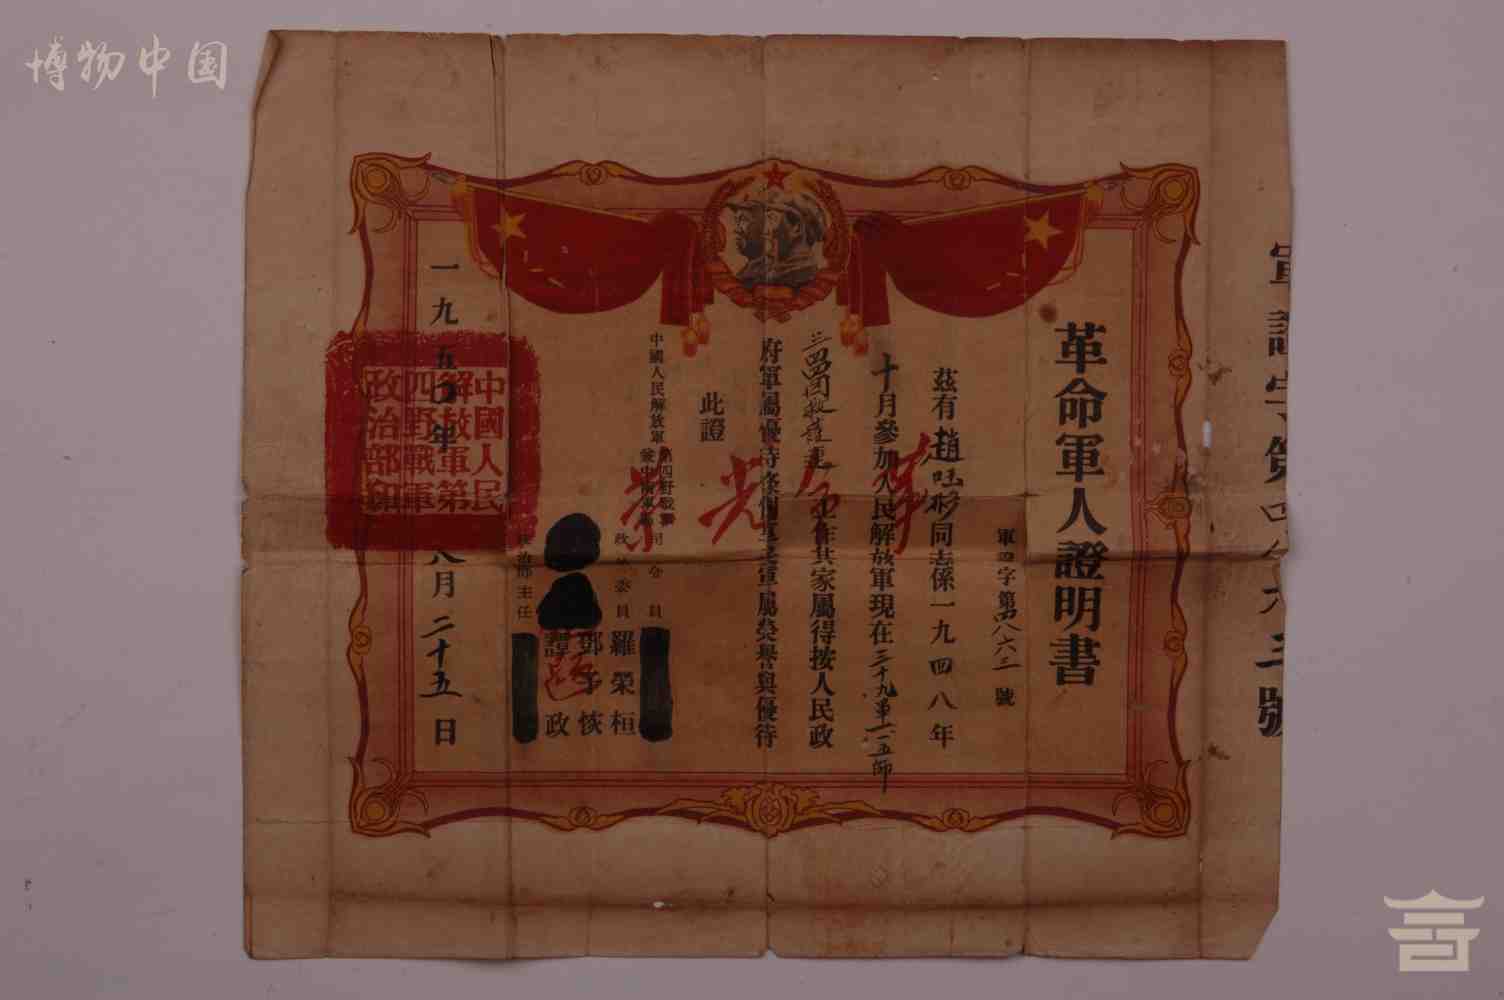 博物中国
軍證字第四八六三號
革命軍人證明書
軍證字第四八六三號
茲有趙 彩同志係一九四八年
十月參加人民解放軍現在三十九軍一一五師
三四四团救護連工作其家屬得按人民政
府軍屬優待條例享受軍屬榮譽與優待
此證
革命光榮
中國人民解放軍
第四野戰軍
兼中南軍區
司令員
政治委員 羅榮桓
鄧子恢
政治部主任
譚政
一九五〇年八月二十五日
中國人民
解放軍第
四野戰軍
政治部印